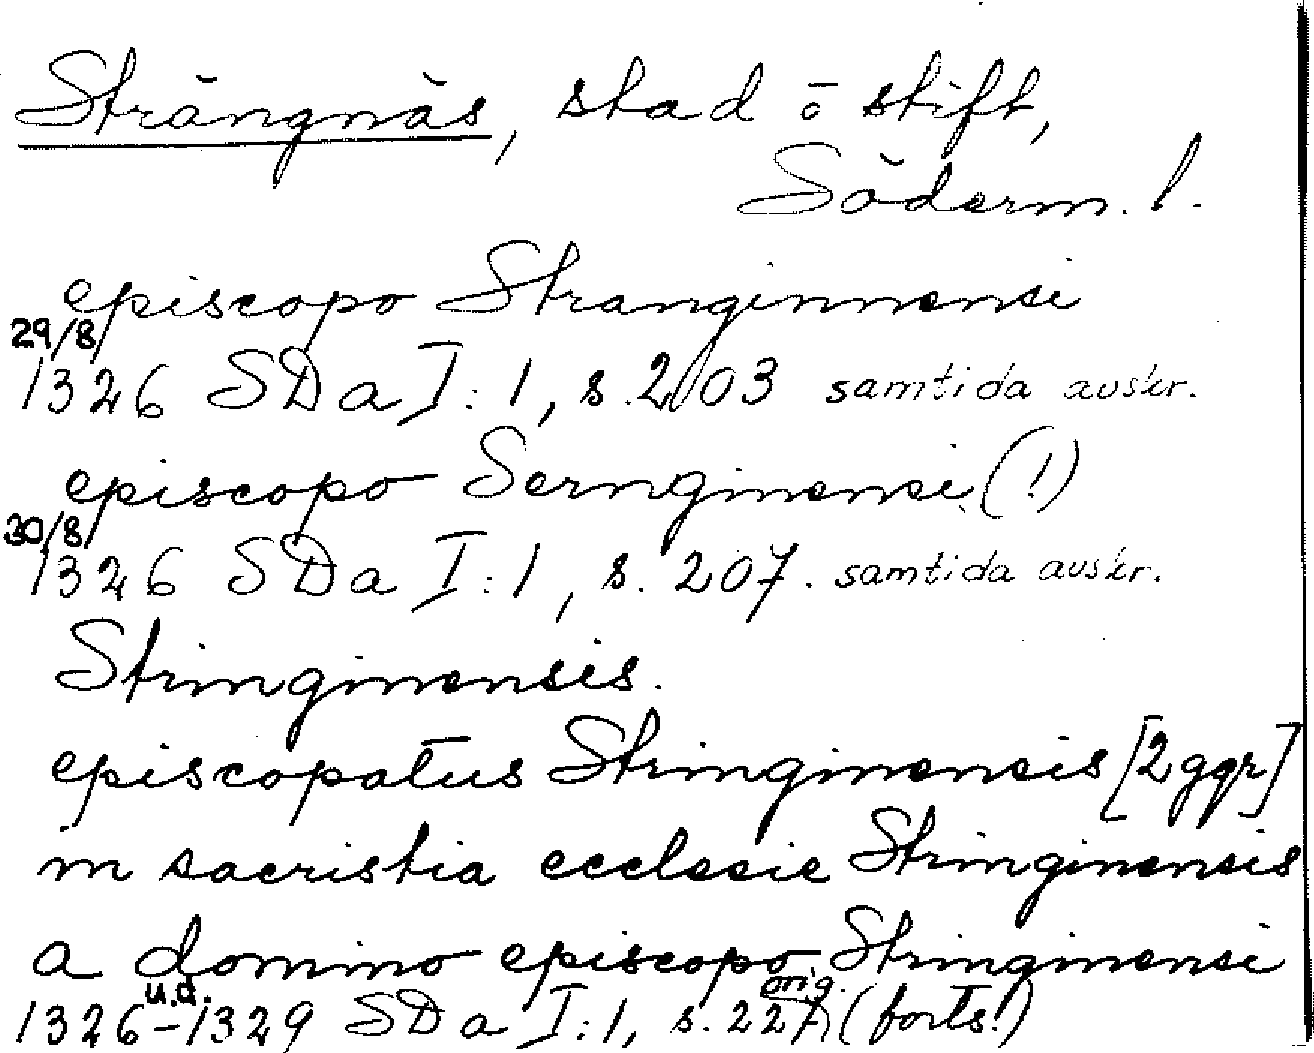 Strängnäs, stad o stift,
Söderm. l.
episcopo Stranginnensi
29/8
1326 SDa I:1, s. 203 samtida avskr.
episcopo Sernginensi (!)
30/8
1326 SDa I:1, s. 207. samtida avskr.
Stringinensis.
episcopatus Stringinensis [2 ggr]
in sacristia ecclesie Stringinensis
a domino episcopo Stringinensi
u.d. orig.
1326-1329 SDa I:1, s. 227 (forts!)